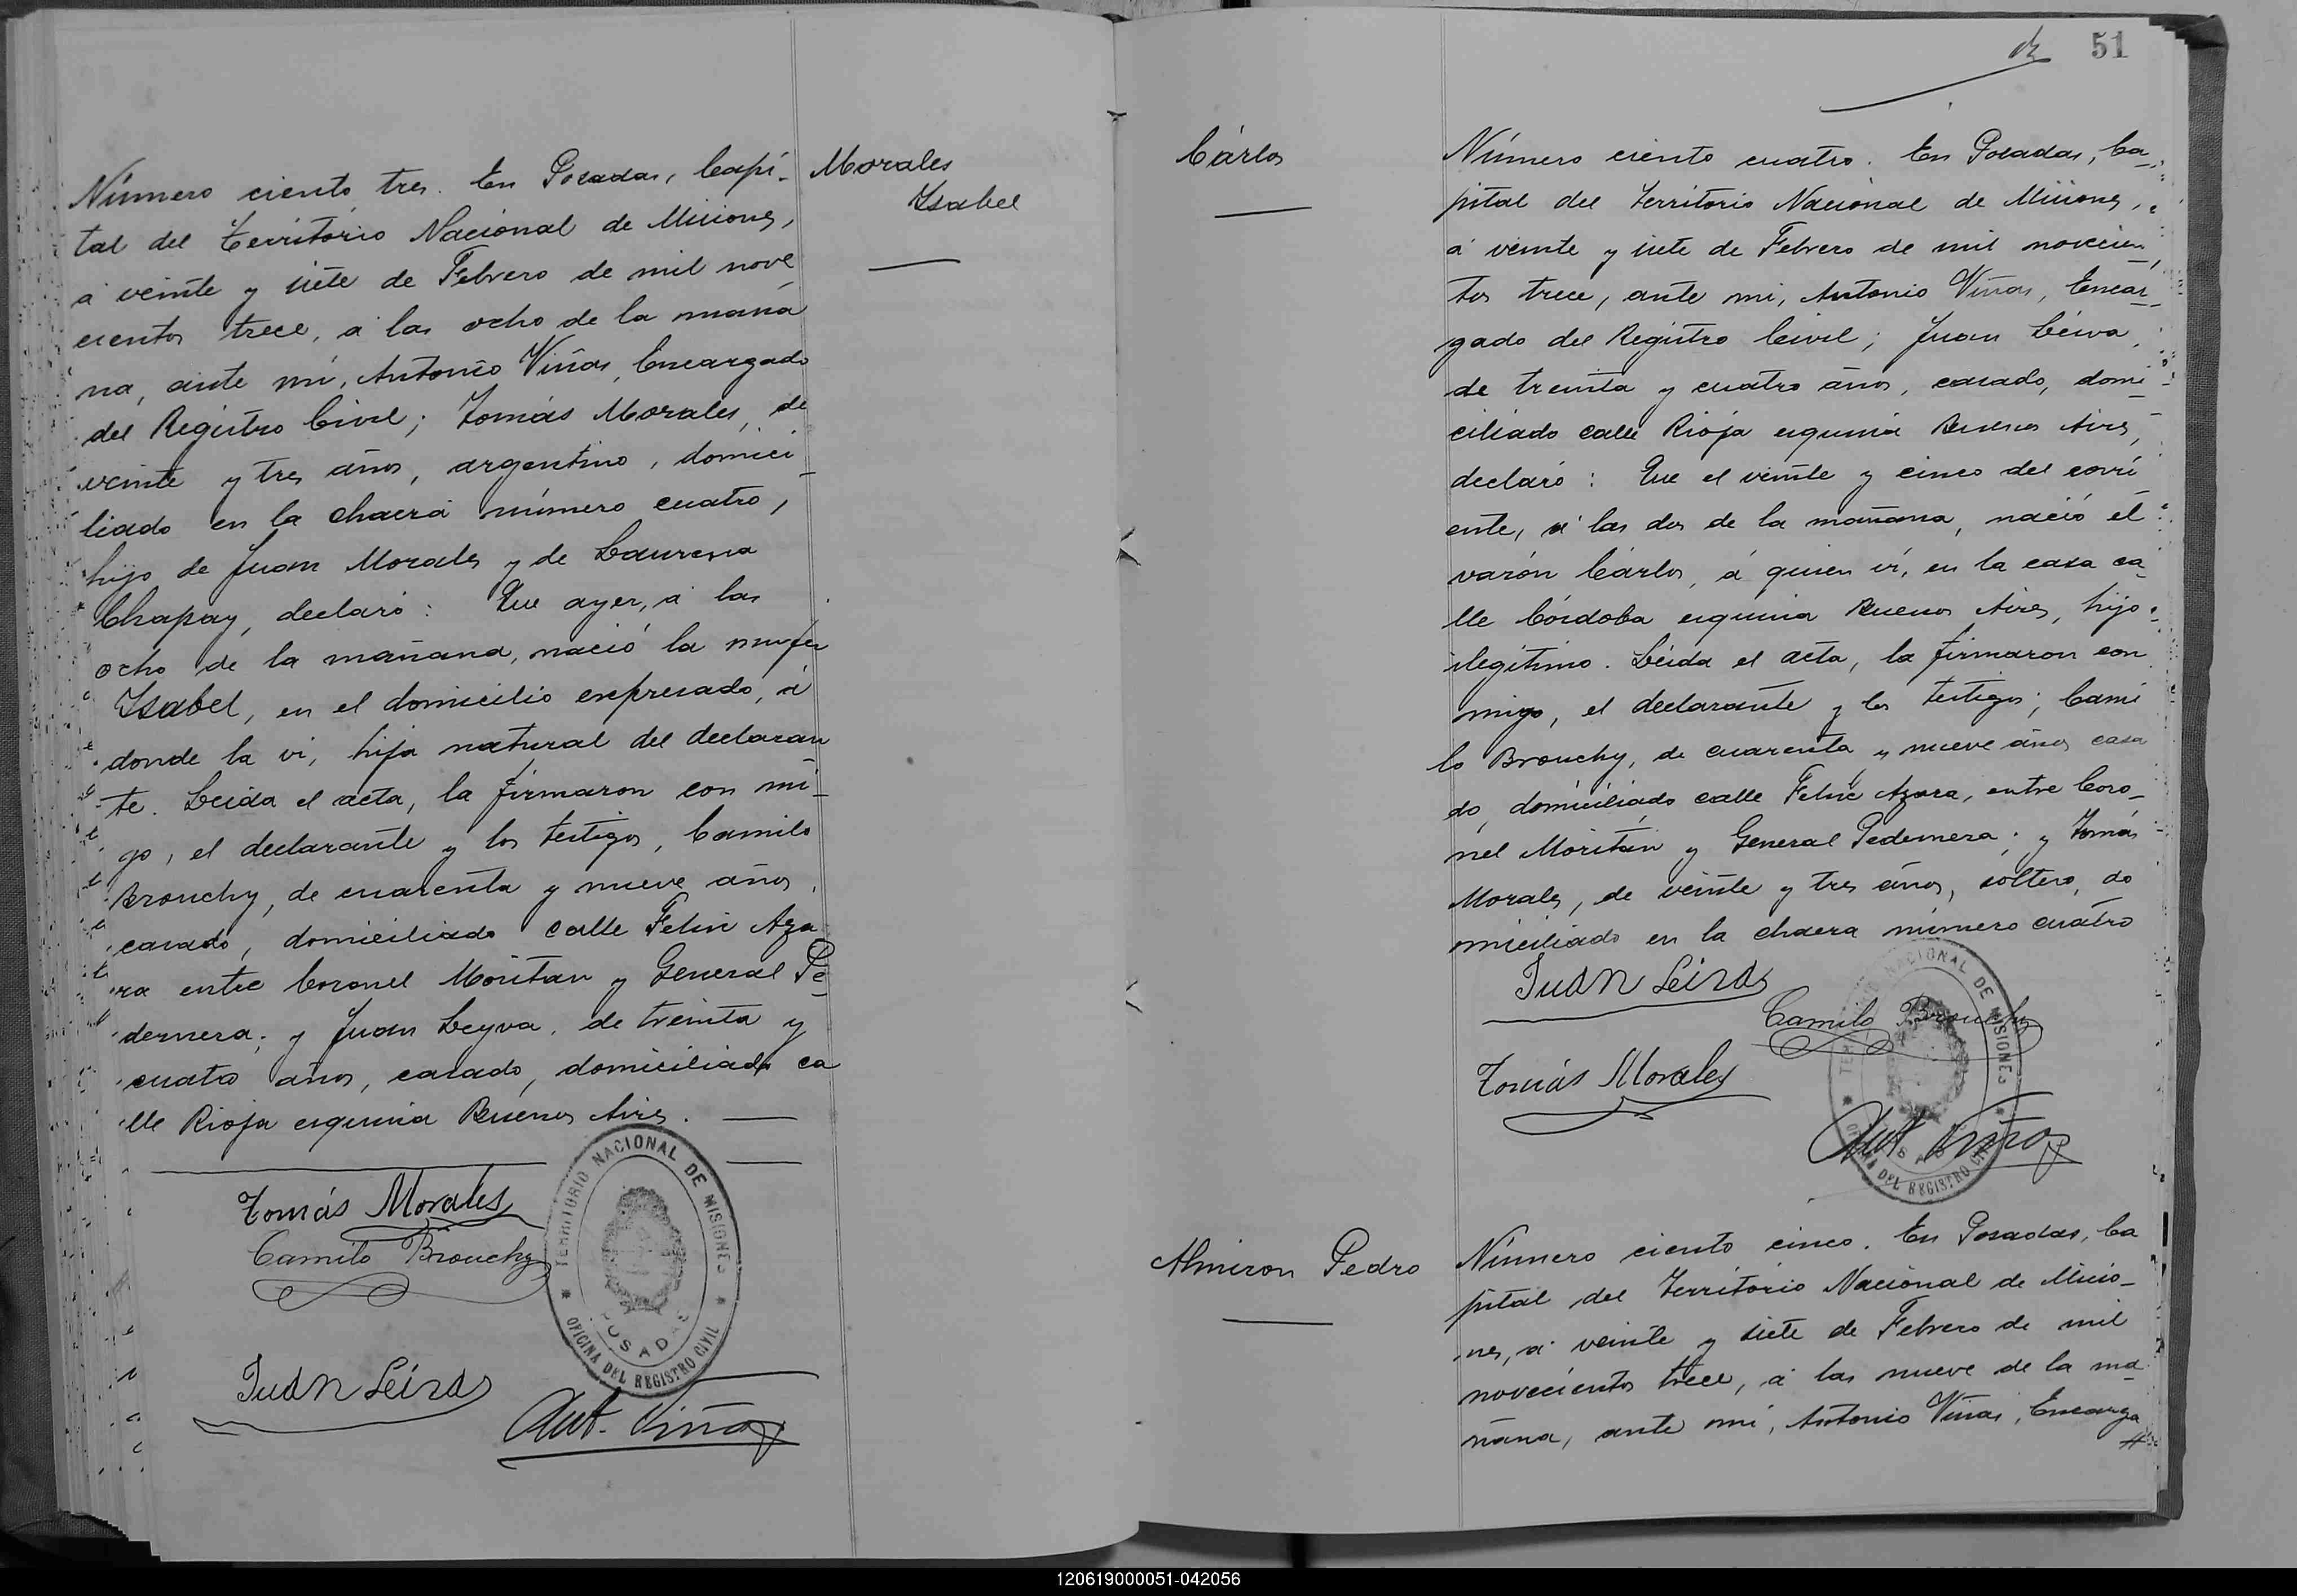 Número ciento tres. En Posadas, Capi-
tal del Territorio Nacional de Misiones,
á veinte y siete de Febrero de mil nove
cientos trece, á las ocho de la maña
na, ante mí, Antonio Viñas, Encargado
del Registro Civil; Tomás Morales, de
veinte y tres años, argentino, domici_
liado en la chacra número cuatro,
hijo de Juan Morales y de Laurena
Chapay, declaró: Que ayer, á las
ocho de la mañana, nació la mujer
Isabel, en el domicilio expresado, á
donde la ví, hija natural del declaran
te. Leida el acta, la firmaron con mi_
go, el declarante y los testigos, Camilo
Brouchy, de cuarenta y nueve años,
casado, domiciliado calle Felix Aza
ra entre Coronel Moritan y General Pe_
dernera; y Juan Leyva, de treinta y
cuatro años, casado, domiciliado ca
lle Rioja esquina Buenos Aires.
Morales
Isabel
Tomás Morales
Camilo Brouchy
Juan Leiva
Ant. Viñas
TERRITORIO NACIONAL DE MISIONES
POSADAS
OFICINA DEL REGISTRO CIVIL
51
Cárlos
Número ciento cuatro. En Posadas, Ca_
pital del Territorio Nacional de Misiones,
á veinte y siete de Febrero de mil novecien_
tos trece, ante mi, Antonio Viñas, Encar_
gado del Registro Civil; Juan Léiva,
de treinta y cuatro años, casado, domi_
ciliado calle Rioja esquina Buenos Aires,
declaró: Que el veinte y cinco del corri
ente, á las dos de la mañana, nació el
varón Cárlos, á quien ví, en la casa ca_
lle Córdoba esquina Buenos Aires, hijo
ilegítimo. Leida el acta, la firmaron con
migo, el declarante y los testigos; Cami
lo Brouchy, de cuarenta y nueve años casa
do, domiciliado calle Felix Azara, entre Coro_
nel Moritan y General Pedernera; y Tomás
Morales, de veinte y tres años, soltero, do
miciliado en la chacra número cuatro
Juan Leiva
Camilo Brouchy
Tomás Morales
Ant. Viñas
TERRITORIO NACIONAL DE MISIONES
POSADAS
OFICINA DEL REGISTRO CIVIL
Almiron Pedro
Número ciento cinco. En Posadas, Ca
pital del Territorio Nacional de Misio_
nes, á veinte y siete de Febrero de mil
novecientos trece, á las nueve de la ma_
ñana, ante mí, Antonio Viñas, Encarga
#
120619000051-042056